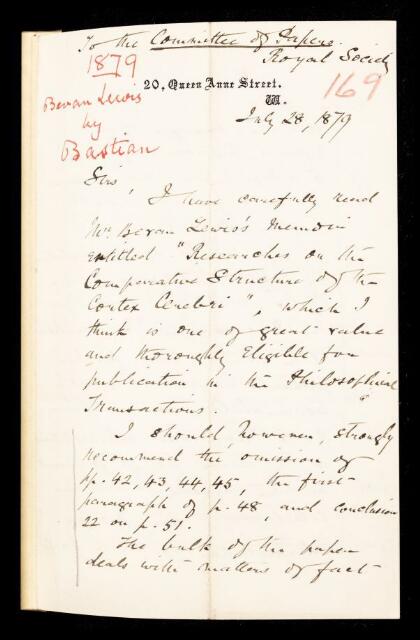 To the Committee of Papers.
Royal Society
1879
169
20, Queen Anne Street.
W.
July 28, 1879
Bevan Lewis
by
Bastian
Sirs,
I have carefully read
Mr. Bevan Lewis's Memoir
entitled "Researches on the
Comparative Structure of the
Cortex Cerebri", which I
think is one of great value
and thoroughly Eligible for
publication in the Philosophical
Transactions.
I should, however, strongly
recommend the omission of
pp. 42, 43, 44, 45, the first
paragraph of p. 48, and conclusion
22 on p. 51.
The bulk of the paper
deals with matters of fact